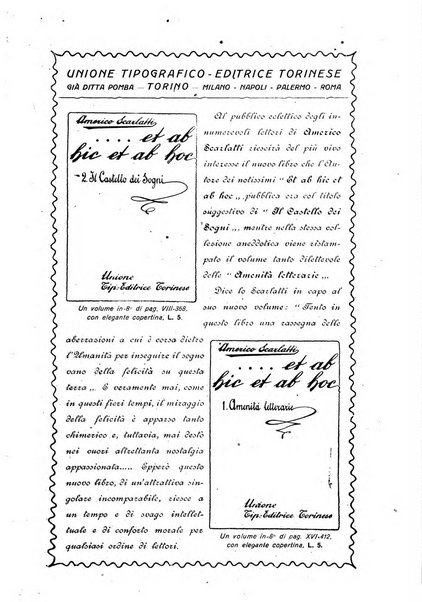 UNIONE TIPOGRAFICO - EDITRICE TORINESE
GIÀ DITTA POMBA — TORINO — MILANO - NAPOLI - PALERMO - ROMA
Americo Scarlatti
.... et ab
hic et ab hoc
2. Il Castello dei Sogni
Unione
Tip. Editrice Torinese
Un volume in-8° di pag. VIII-368,
con elegante copertina, L. 5.
Al pubblico eclettico degli in-
numerevoli lettori di Americo
Scarlatti riescirà del più vivo
interesse il nuovo libro che l'Au-
tore dei notissimi “ Et ab hic et
ab hoc „ pubblica ora col titolo
suggestivo di “ Il Castello dei
Sogni „, mentre nella stessa col-
lesione aneddotica viene ristam-
pato il volume tanto dilettevole
delle “ Amenità letterarie „.
Dice lo Scarlatti in capo al
suo nuovo volume: “ Tento in
questo libro una rassegna delle
aberrazioni a cui è corsa dietro
l'Umanità per inseguire il sogno
vano della felicità su questa
terra „. E veramente mai, come
in questi fieri tempi, il miraggio
della felicità è apparso tanto
chimerico e, tuttavia, mai destò
nei cuori altrettanta nostalgia
appassionata..... Epperò questo
nuovo libro, di un'attrattiva sin-
golare incomparabile, riesce a
un tempo e di svago intellet-
tuale e di conforto morale per
qualsiasi ordine di lettori.
Americo Scarlatti
.... et ab
hic et ab hoc
1. Amenità letterarie
Unione
Tip. Editrice Torinese
Un volume in-8° di pag. XVI-412,
con elegante copertina, L. 5.